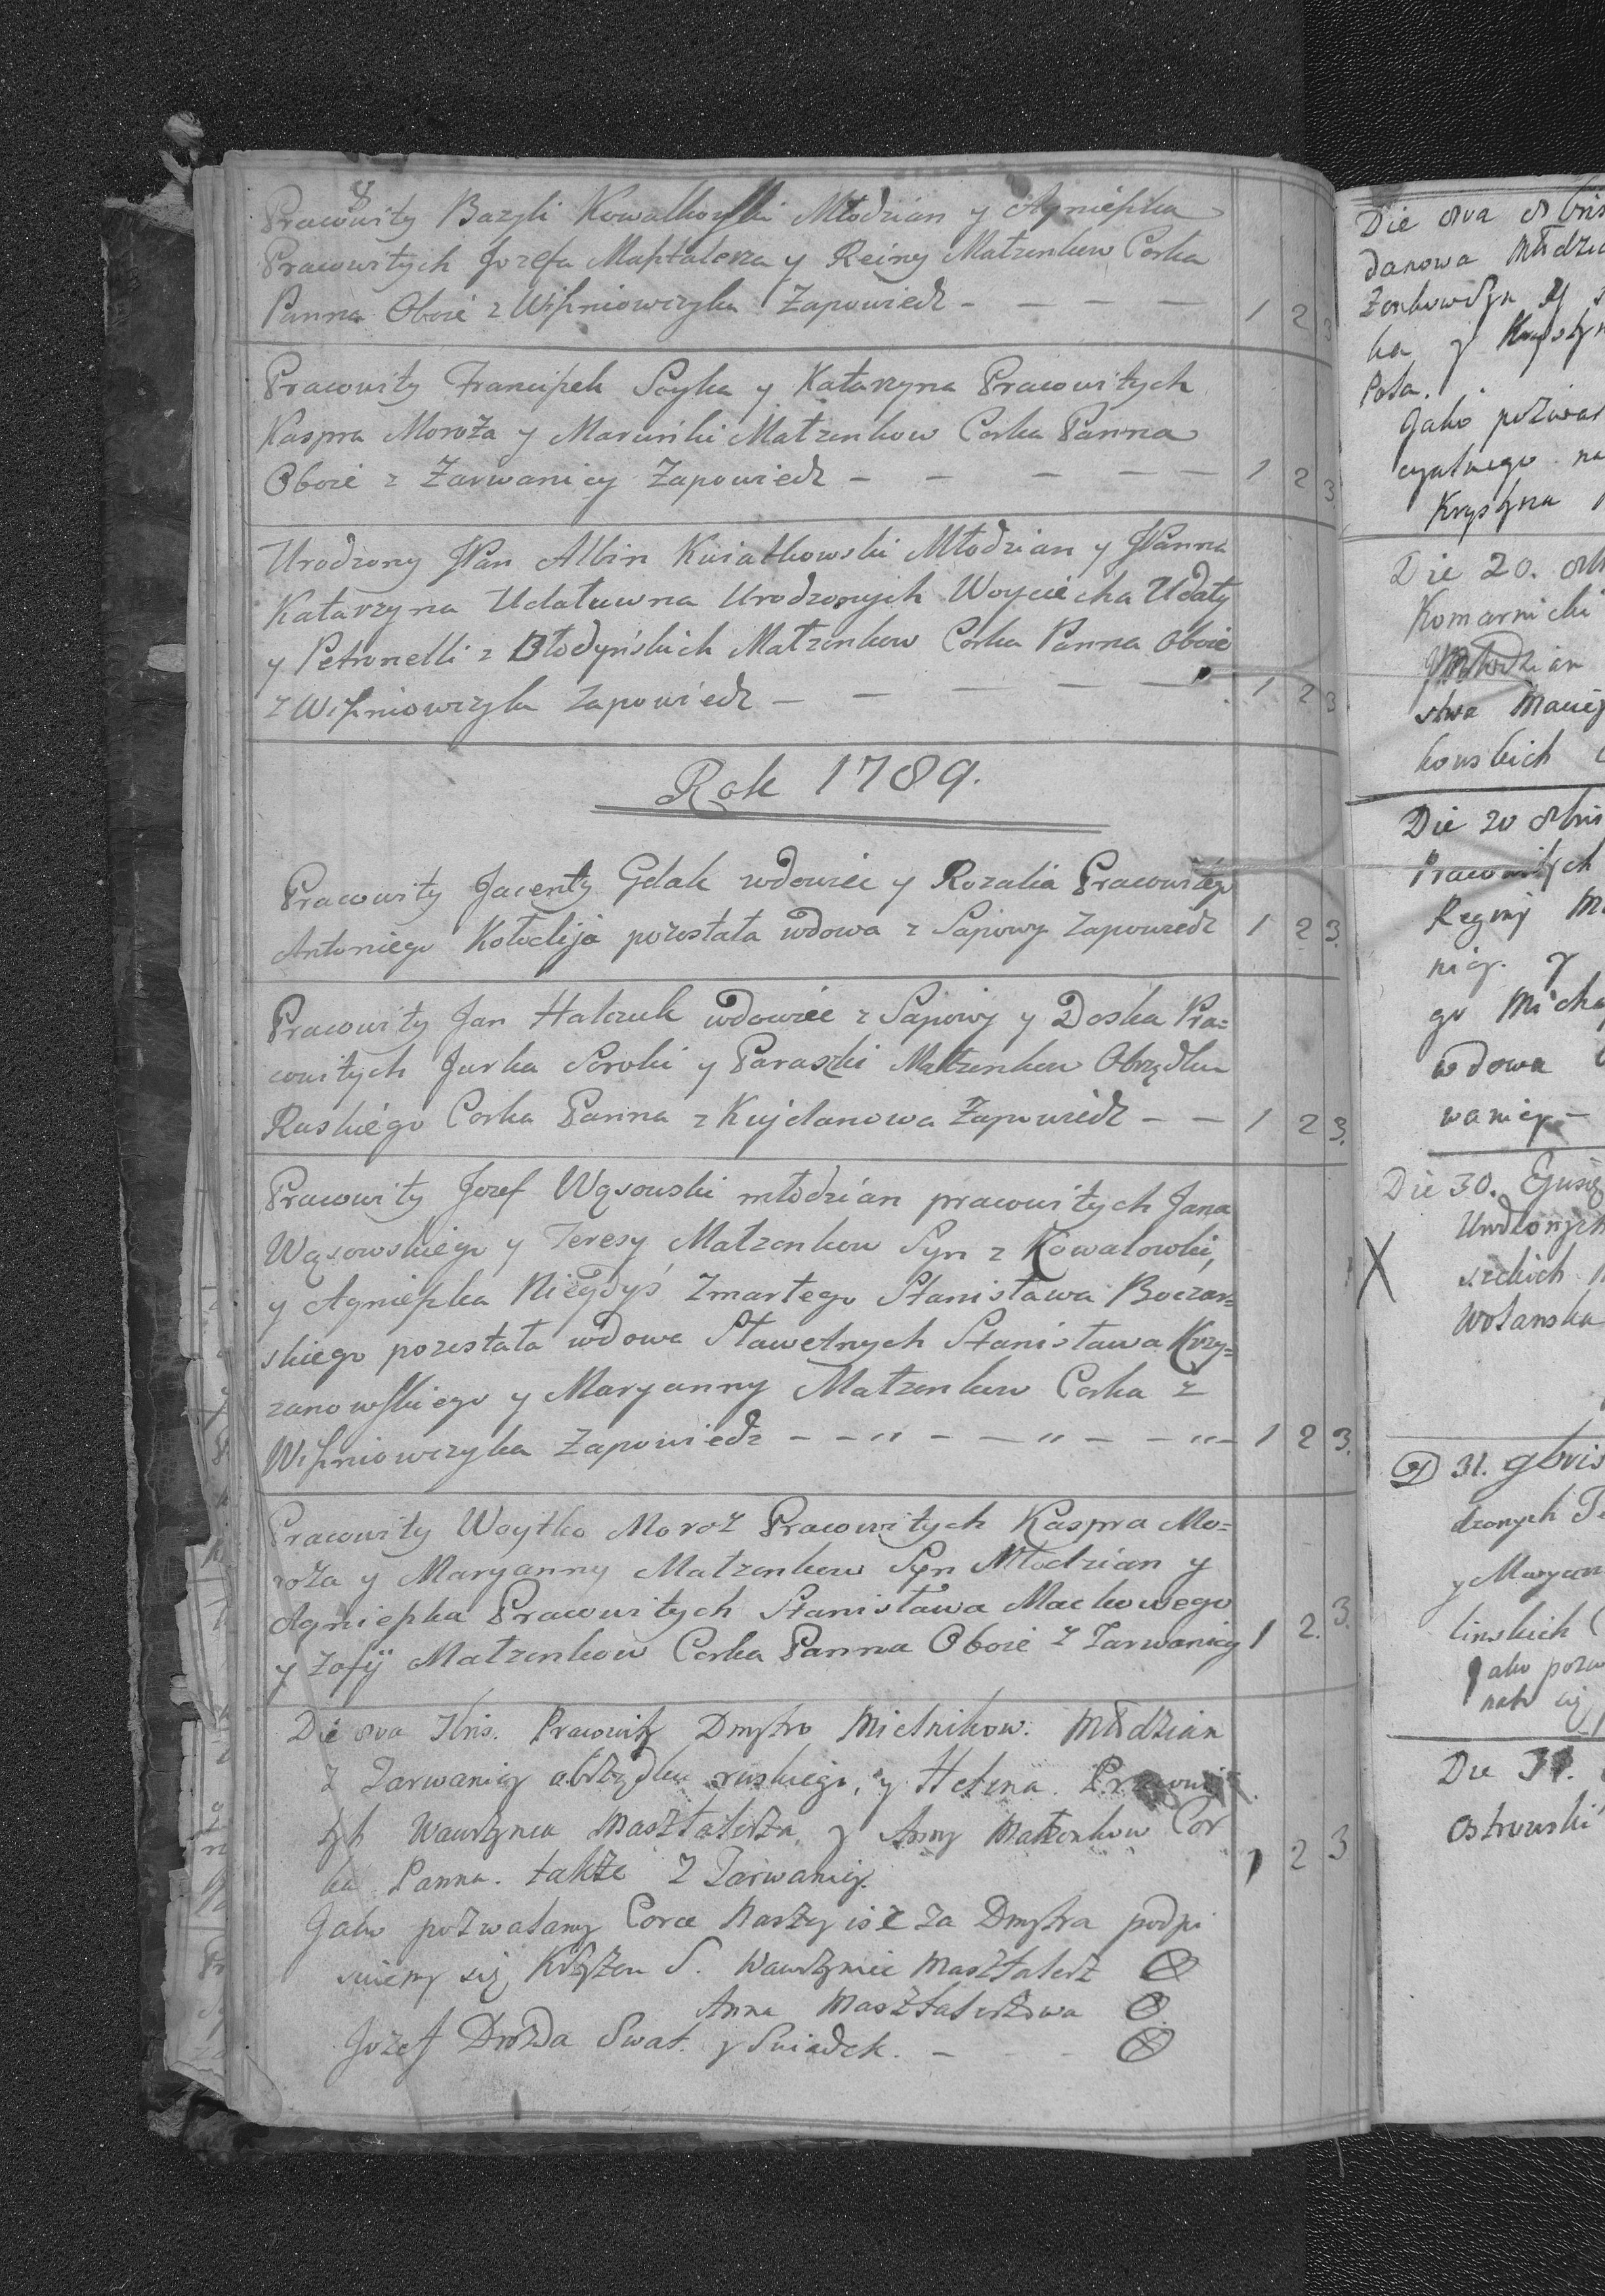 Pracowity Bazyli Kowalkowski Młodzian y Agnieszka
Pracowitych Jozefa Masztalerza y Reiny Małzenkow Corka
Panna Oboie z Wiszniowczyka Zapowiedz - - - - 1 2 3
Pracowity Franciszek Soyka y Katarzyna Pracowitych
Kaspra Moroza y Maruńki Małzenkow Corka Panna
Oboie z Zarwanicy Zapowiedz - - - - - 1 2 3
Urodzony JPan Albin Kwiatkowski Młodzian y JPanna
Katarzyna Udatuwna Urodzonych Woyciecha Udaty
y Petronelli z Błodyńskich Małzenkow Corka Panna Oboie
z Wiszniowczyka Zapowiedz - - - - - 1 2 3
Rok 1789.
Pracowity Jacenty Gdak wdowiec y Rozalia Pracowitego
Antoniego Kołodija pozostała wdowa z Sapowy Zapowiedz 1 2 3.
Pracowity Jan Halczuk wdowiec z Sapowy y Doska Pra=
cowitych Jurka Soroki y Paraszki Małzenkow Obrządku
Ruskiego Corka Panna z Kujdanowa Zapowiedz - - 1 2 3.
Pracowity Jozef Wąsowski młodzian pracowitych Jana
Wąsowskiego y Teresy Małzenkow Syn z Kowalowki,
y Agnieszka Niegdyś Zmarłego Stanisława Boczar=
skiego pozostała wdowa Sławetnych Stanisława Krzy=
zanowskiego y Maryanny Małzenkow Corka z
Wiszniowczyka Zapowiedz - - " - - " - - " - 1 2 3.
Pracowity Woytko Moroz Pracowitych Kaspra Mo=
roza y Maryanny Małzenkow Syn Młodzian y
Agnieszka Pracowitych Stanisława Mackowego
y Zofij Małzenkow Corka Panna Oboie z Zarwanicy 1 2. 3.
Die 8va 7bris. Pracowity Dmytro Mielnikow. Młodzian
z Zarwanicy obrządku ruskiego, y Helena. Pracowi
tych Wawrzynca Masztalerza y Anny Małzenkow Cor
ka Panna. także z Zarwanicy. 1 2 3
Jako pozwalamy Corce Naszy isć za Dmytra podpi
suiemy się Krzyzem S. Wawrzyniec Masztalerz
Anna Masztalerzowa
Jozef Drozda Swat. y Swiadek. - - -
Die 8va 8bris
danowa Młodzia
Zonkow Syn y
ka y Krystyn
Pola.
Jako pozwal
cyalnego na
Krystyna
Die 20.
Komarnicki
Młodzian
stwa Maciej
kowskich
Die 20 8bris
Pracowitych
Reginy Ma
nicy. y
go Micha
wdowa
wanicy -
Die 30. Ejusd
X Urodzonych
szckich
Wolanska
31. 9bris
dzonych
y Maryann
linskich
Jako pozw
Die 31.
Ostrowski